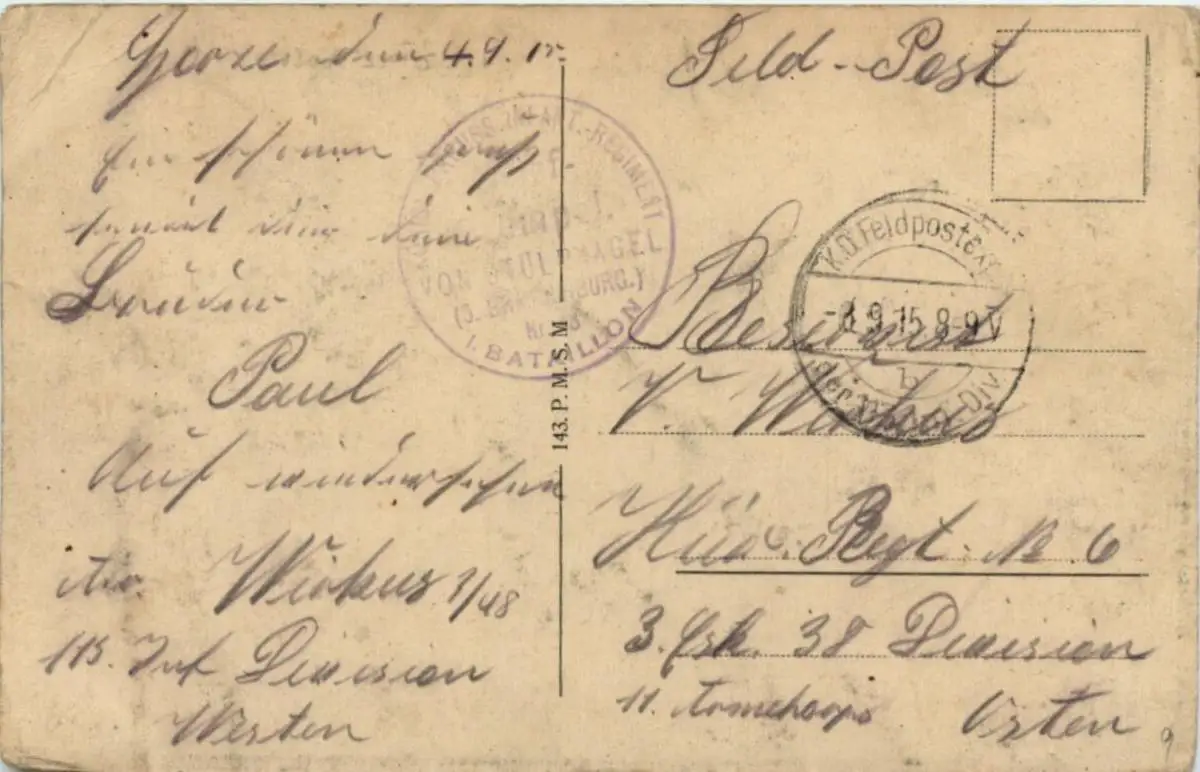 Gorze den 4.9.15
Ein schönen Gruß
sendet dir dein
Bruder
Paul
Auf wiedersehen
Wirkus 1/48
113. Inf Division
Westen
143. P. M. S. M
INFANT.-REGIMENT
VON STÜLPNAGEL
(5. BRANDENBURG.)
Nr. 48
I. BATAILLON
Feld-Post
K.D. Feldpostexp.
9.15 8-9V
b
der Inf. Div.
P. Wirkus
Hus. Regt. № 6
3. Esk. 38 Division
11. Armekorps Osten